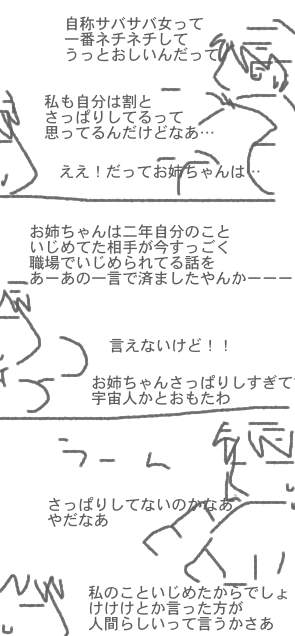 自称サバサバ女って
一番ネチネチして
うっとおしいんだって
私も自分は割と
さっぱりしてるって
思ってるんだけどなあ…
ええ！だってお姉ちゃんは…
お姉ちゃんは二年自分のこと
いじめてた相手が今すっごく
職場でいじめられてる話を
あーあの一言で済ましたやんかーーー
言えないけど！！
お姉ちゃんさっぱりしすぎてて
宇宙人かとおもたわ
うーん
さっぱりしてないのかなあ
やだなあ
私のこといじめたからでしょ
けけけとか言った方が
人間らしいって言うかさあ